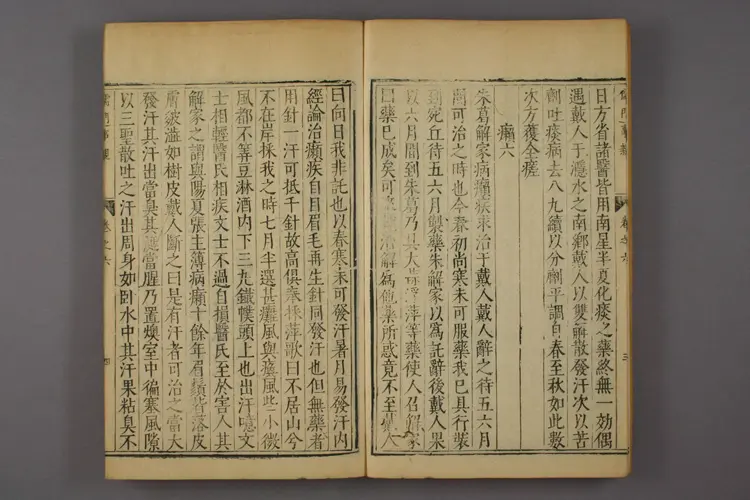 日方省諸醫皆用南星半夏化痰之藥終無一効偶
遇戴人于㶏水之南鄉戴人以雙解散發汗次以苦
劑吐痰病去八九續以分劑平調自春至秋如此數
次方獲全瘥
癩六
朱葛解家病癩疾求治于戴人戴人辭之待五六月
間可治之時也今春初尚寒未可服藥我已具行裝
到宛丘待五六月製藥朱解家以爲託辭後戴人果
以六月間到朱葛乃具大蒜浮萍等藥使人召解家
曰藥已成矣可來治解爲他藥所惑竟不至戴人
曰向日我非託也以春寒未可發汗暑月易發汗内
經論治癩疾自目眉毛再生針同發汗也但無藥者
用針一汗可抵千針故高俱奉採萍歌曰不居山兮
不在岸採我之時七月半選甚癱風與瘓風些小微
風都不筭豆淋酒内下三丸鐵幞頭上也出汗噫文
士相輕醫氏相疾文士不過自損醫氏至於害人其
解家之謂與陽夏張主簿病癩十餘年眉鬚皆落皮
膚皴澁如樹皮戴人斷之曰是有汗者可治之當大
發汗其汗出當臭其涎當腥乃置燠室中徧塞風隙
以三聖散吐之汗出周身如卧水中其汗果粘臭不
卷之六
三
卷之六
四